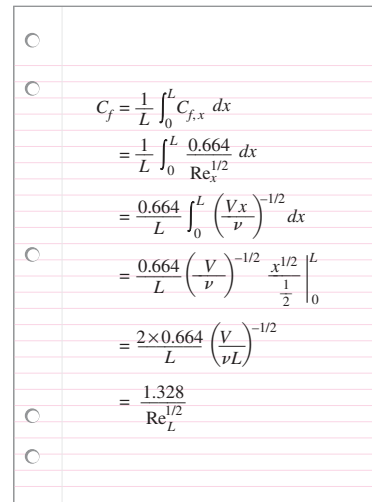 C_f = \frac{1}{L} \int_0^L C_{f,x} dx
= \frac{1}{L} \int_0^L \frac{0.664}{Re_x^{1/2}} dx
= \frac{0.664}{L} \int_0^L \left(\frac{Vx}{ν}\right)^{-1/2} dx
= \frac{0.664}{L} \left(\frac{V}{ν}\right)^{-1/2} \frac{x^{1/2}}{\frac{1}{2}} \Big|_0^L
= \frac{2×0.664}{L} \left(\frac{V}{νL}\right)^{-1/2}
= \frac{1.328}{Re_L^{1/2}}